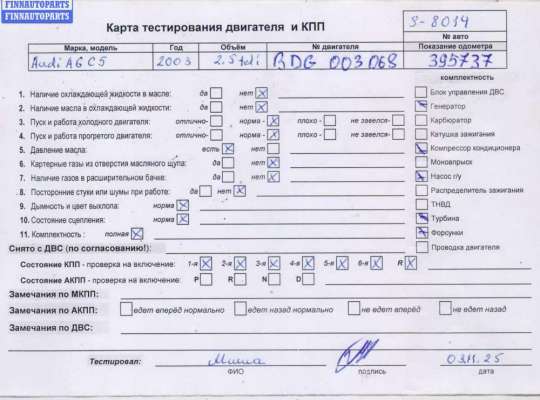 FINNAUTOPARTS
FINNAUTOPARTS
Карта тестирования двигателя и КПП
S-8014
№ авто
Марка, модель Год Объём № двигателя Показание одометра
Audi A6 C5 2003 2.5 tdi BDG 003068 395737
комплектность
1. Наличие охлаждающей жидкости в масле: да нет
2. Наличие масла в охлаждающей жидкости: да нет
3. Пуск и работа холодного двигателя: отлично- норма - плохо - не завелся-
4. Пуск и работа прогретого двигателя: отлично- норма - плохо - не завелся-
5. Давление масла: есть нет
6. Картерные газы из отверстия масляного щупа: да нет
7. Наличие газов в расширительном бачке: да нет
8. Посторонние стуки или шумы при работе: да нет
9. Дымность и цвет выхлопа: норма
10. Состояние сцепления: норма
11. Комплектность : полная
Блок управления ДВС
Генератор
Карбюратор
Катушка зажигания
Компрессор кондиционера
Моновпрыск
Насос г/у
Распределитель зажигания
ТНВД
Турбина
Форсунки
Проводка двигателя
Снято с ДВС (по согласованию!):
Состояние КПП - проверка на включение: 1-я 2-я 3-я 4-я 5-я 6-я R
Состояние АКПП - проверка на включение: P R N D
Замечания по МКПП:
Замечания по АКПП: едет вперёд нормально едет назад нормально не едет вперёд не едет назад
Замечания по ДВС:
Тестировал: Миша 03.11.25
ФИО подпись дата